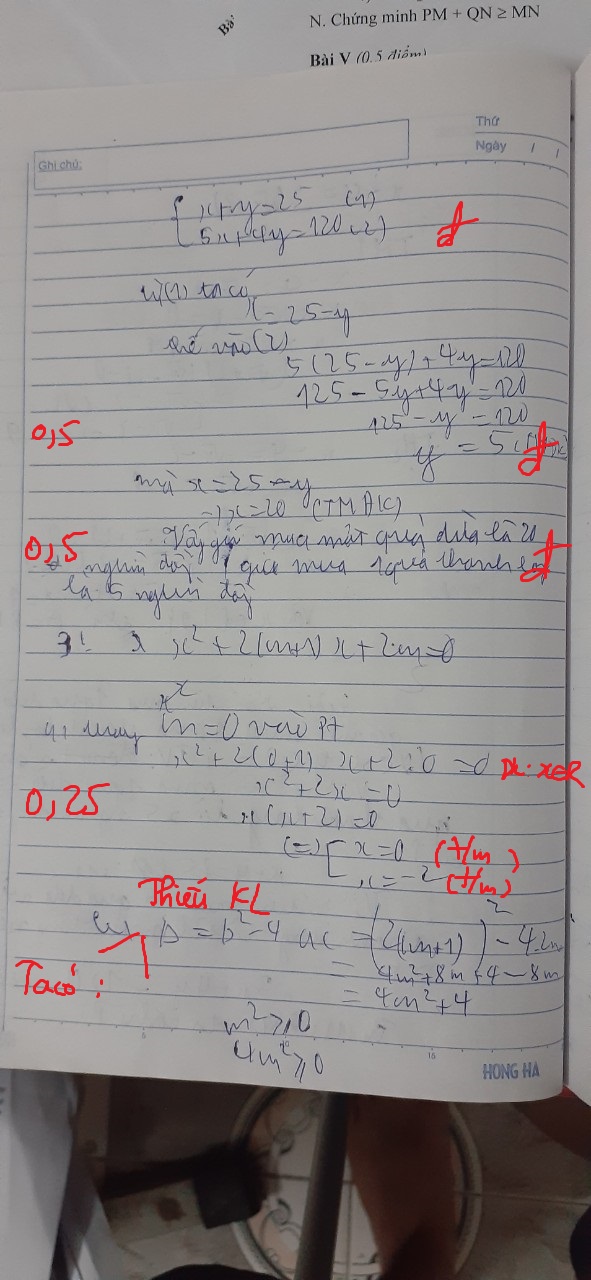 Bài
N. Chứng minh PM + QN ≥ MN
Bài V (0.5 điểm)
Thứ
Ngày / /
Ghi chú:
x+y=25 (1)
5x+4y=120 (2)
đ
từ(1) ta có
x=25-y
thế vào(2)
5(25-y)+4y=120
125-5y+4y=120
125-y=120
0,5
y = 5
đ
mà x=25-y
=> x=20 (TMĐK)
0,5
Vậy giá mua một quả dừa là 20
đ
nghìn đồng, giá mua 1 quả thanh long
là 5 nghìn đồng
3! x²+2(m+1)x+2m=0
x²
thay m=0 vào Pt
x²+2(0+1)x+2.0=0 ĐK: x∈R
x²+2x=0
0,25
x(x+2)=0
(=) x=0 (t/m)
x=-2 (t/m)
Thiếu KL
Δ=b²-4ac=(2(m+1))²-4.2m
Ta có:
=4m²+8m+4-8m
=4m²+4
m²≥0
4m²≥0
16
HONG HA